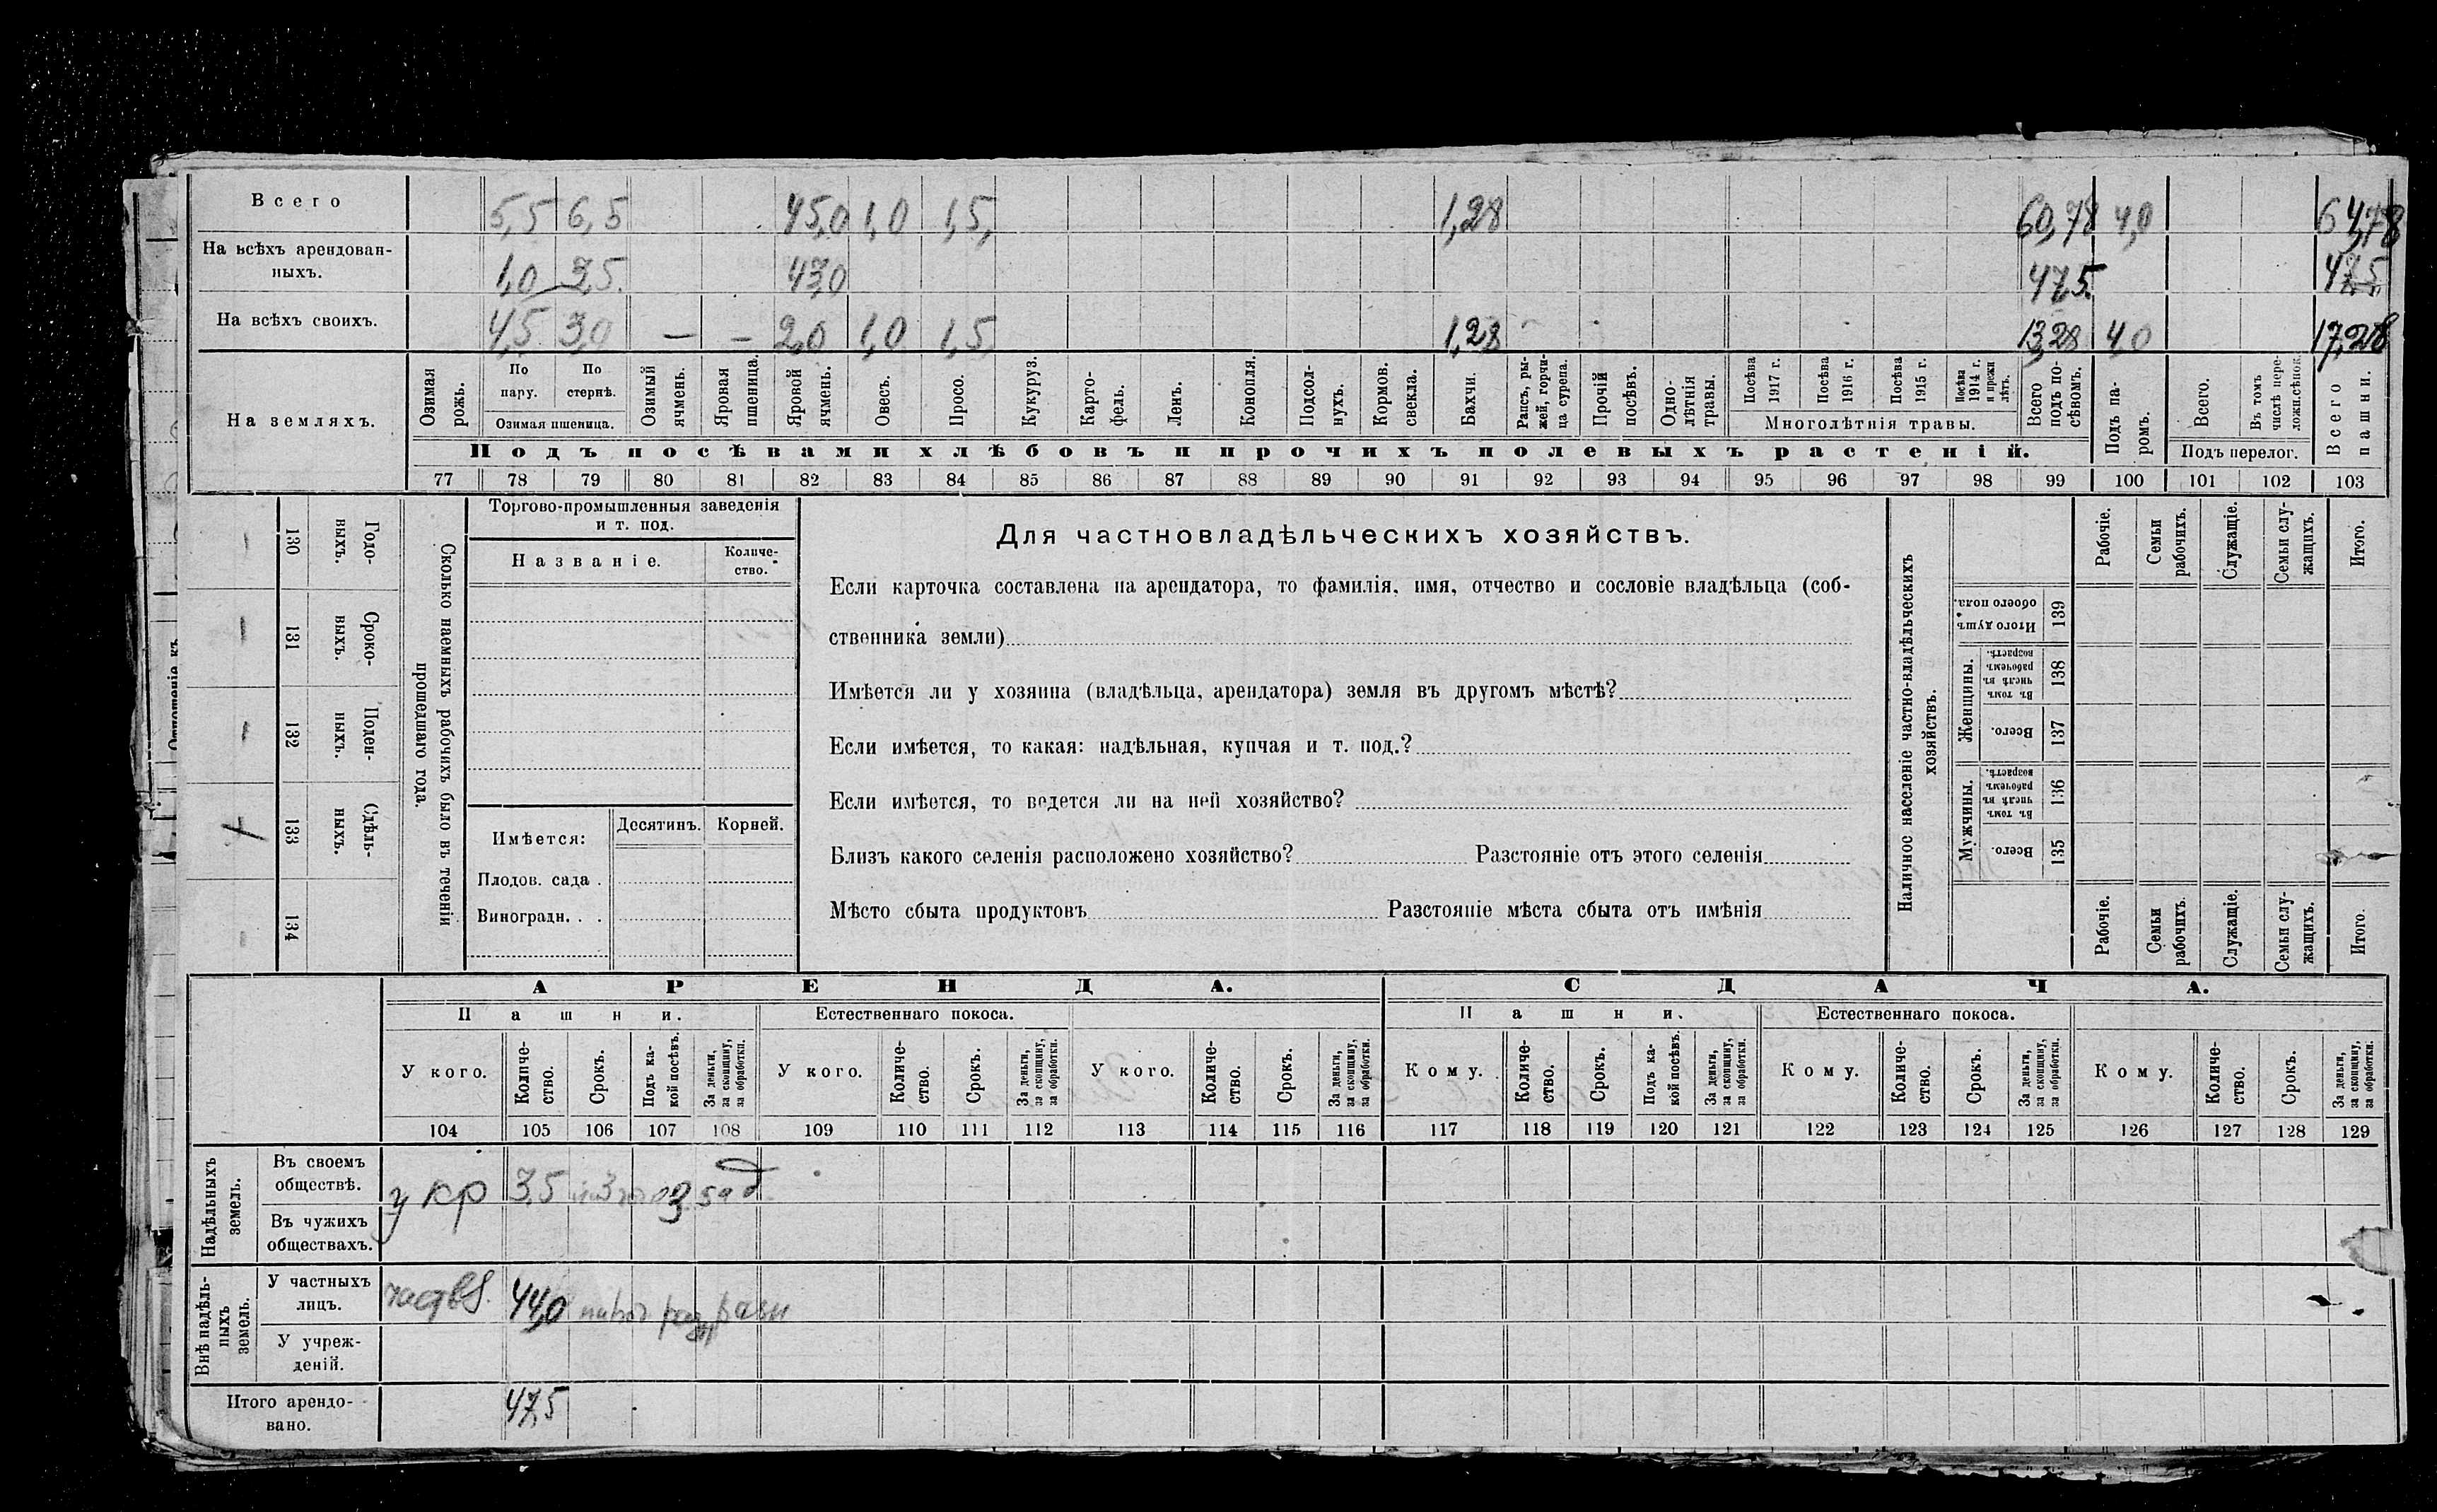 Всего 5,5 6,5 45,0 1,0 1,5 1,28 60,78 4,0 64,78
На всѣхъ арендован-
ныхъ. 1,0 3,5 43,0 47,5 47,5
На всѣхъ своихъ. 4,5 3,0 — — 2,0 1,0 1,5 1,28 13,28 4,0 17,28
На земляхъ.
Озимая рожь.
По пару.
По стернѣ.
Озимая пшеница.
Озимый ячмень.
Яровая пшеница.
Яровой ячмень.
Овесъ.
Просо.
Кукуруз.
Карто-
фель.
Ленъ.
Конопля.
Подсол-
нухъ.
Кормов. свекла.
Бахчи.
Рапсъ, ры-
жей, горчи-
ца сурепа.
Прочій посѣвъ.
Одно-
лѣтнія травы.
Посѣва 1917 г.
Посѣва 1916 г.
Посѣва 1915 г.
Посѣва 1914 г. и прежн лѣтъ.
Многолѣтнія травы.
Всего подъ по-
сѣвомъ.
Подъ па-
ромъ.
Всего.
Въ томъ числѣ пере-
ложн.сѣнок.
Подъ перелог.
Всего пашни.
Подъ посѣвами хлѣбовъ и прочихъ полевыхъ растеній.
77 78 79 80 81 82 83 84 85 86 87 88 89 90 91 92 93 94 95 96 97 98 99 100 101 102 103
— 130 Годо-
выхъ.
— 131 Сроко-
выхъ.
— 132 Поден-
ныхъ.
133 Сдѣль-
ныхъ.
— 134
Сколько наемныхъ рабочихъ было въ теченіи
прошедшаго года.
Торгово-промышленныя заведенія
и т. под.
Названіе.
Количе-
ство.
Имѣется:
Десятинъ. Корней.
Плодов. сада .
Виноградн. . .
Для частновладѣльческихъ хозяйствъ.
Если карточка составлена на арендатора, то фамилія, имя, отчество и сословіе владѣльца (соб-
ственника земли)
Имѣется ли у хозяина (владѣльца, арендатора) земля въ другомъ мѣстѣ?
Если имѣется, то какая: надѣльная, купчая и т. под.?
Если имѣется, то ведется ли на ней хозяйство?
Близъ какого селенія расположено хозяйство? Разстояніе отъ этого селенія
Мѣсто сбыта продуктовъ Разстояніе мѣста сбыта отъ имѣнія
Наличное населеніе частно-владѣльческихъ
хозяйствъ.
Рабочіе.
Семьи рабочихъ.
Служащіе.
Семьи слу-
жащихъ.
Итого.
Итого душъ обоего пола. 139
Женщины.
Въ томъ числѣ въ рабочемъ возрастѣ. 138
Всего. 137
Мужчины.
Въ томъ числѣ въ рабочемъ возрастѣ. 136
Всего. 135
Рабочіе.
Семьи рабочихъ.
Служащіе.
Семьи слу-
жащихъ.
Итого.
АРЕНДА. СДАЧА.
Пашни. Естественнаго покоса. Пашни. Естественнаго покоса.
У кого.
Количе-
ство.
Срокъ.
Подъ ка-
кой посѣвъ.
За деньги, за скопщину, за обработки.
У кого.
Количе-
ство.
Срокъ.
За деньги, за скопщину, за обработки.
У кого.
Количе-
ство.
Срокъ.
За деньги, за скопщину, за обработки.
Кому.
Количе-
ство.
Срокъ.
Подъ ка-
кой посѣвъ.
За деньги, за скопщину, за обработки.
Кому.
Количе-
ство.
Срокъ.
За деньги, за скопщину, за обработки.
Кому.
Количе-
ство.
Срокъ.
За деньги, за скопщину, за обработки.
104 105 106 107 108 109 110 111 112 113 114 115 116 117 118 119 120 121 122 123 124 125 126 127 128 129
Надѣльныхъ земель.
Въ своемъ
обществѣ. у кр 3,5
Въ чужихъ
обществахъ.
Внѣ надѣль-
ныхъ земель.
У частныхъ
лицъ. 44,0
У учреж-
деній.
Итого арендо-
вано. 47,5
Отношеніе къ